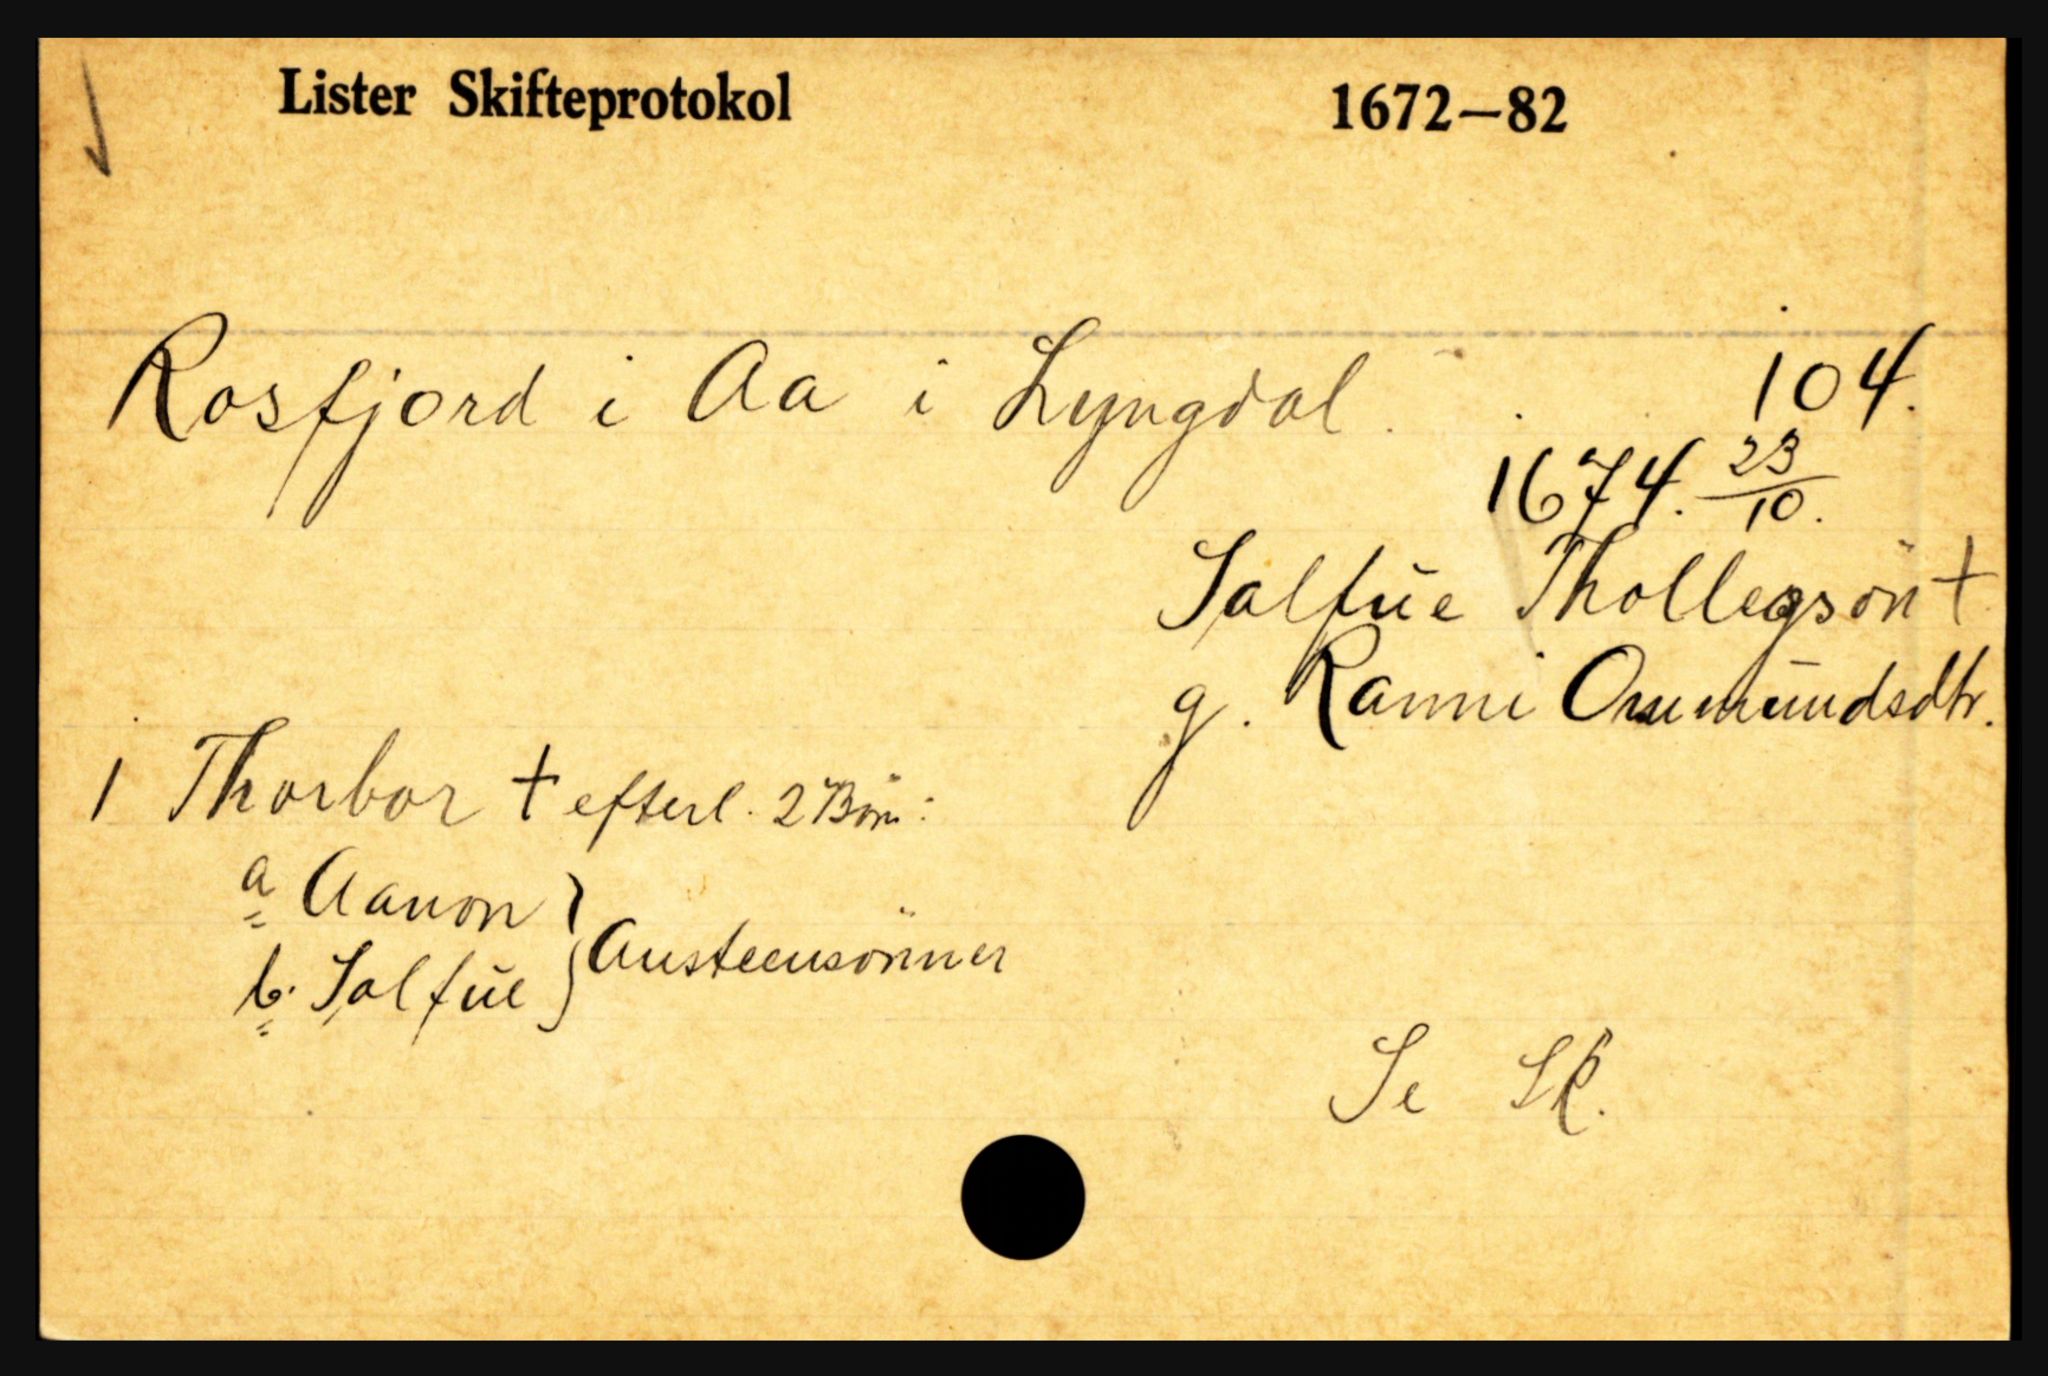 Lister Skifteprotokol 1672—82
Rosfjord i Aa i Lyngdal. 104.
1674. 23/10.
Salfue Thollegsön †
g. Ranni Osmundsdtr.
1 Thorbor † efterl. 2 Börn:
a Aanon
Austeensönner
b. Salfue
Se Sk.